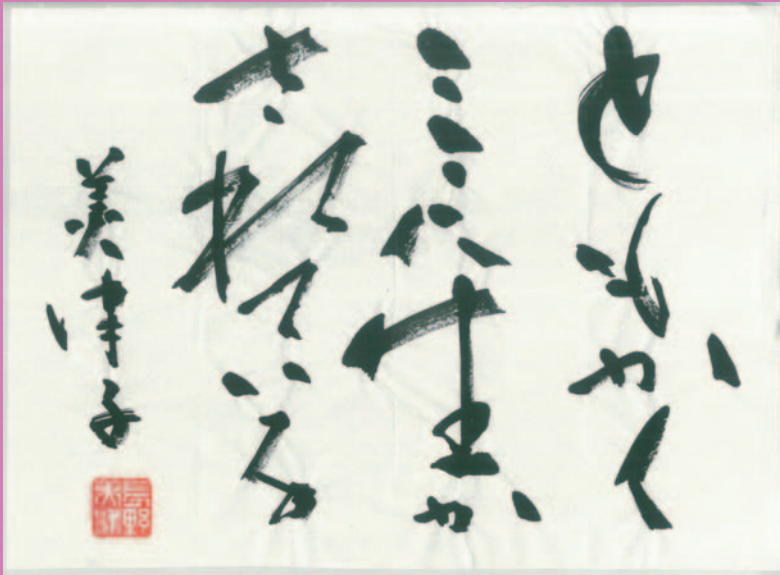 ともかく
ここに生か
されている
美津子